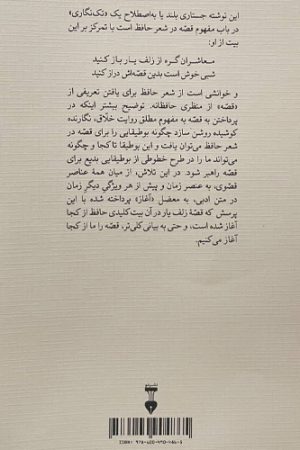 این نوشته جستاری بلند یا به‌اصطلاح یک «تک‌نگاری»
در باب مفهوم قصّه در شعر حافظ است با تمرکز بر این
بیت از او:
معاشران گره از زلف یار باز کنید
شبی خوش است بدین قصّه‌اش دراز کنید
و خوانشی است از شعر حافظ برای یافتن تعریفی از
«قصّه» از منظری حافظانه. توضیح بیشتر اینکه در
پرداختن به قصّه به مفهوم مطلق روایت خلاق، نگارنده
کوشیده روشن سازد چگونه بوطیقایی را برای قصّه در
شعر حافظ می‌توان یافت و این بوطیقا تا کجا و چگونه
می‌تواند ما را در طرح خطوطی از بوطیقایی بدیع برای
قصّه راهبر شود. در این تلاش، از میان همهٔ عناصر
قصّوی، به عنصر زمان و پیش از هر ویژگیِ دیگرِ زمان
در متن ادبی، به معضل «آغاز» پرداخته شده با این
پرسش که قصّهٔ زلف یار در آن بیت کلیدی حافظ از کجا
آغاز شده است، و حتی به بیانی کلی‌تر، قصّه را ما از کجا
آغاز می‌کنیم.